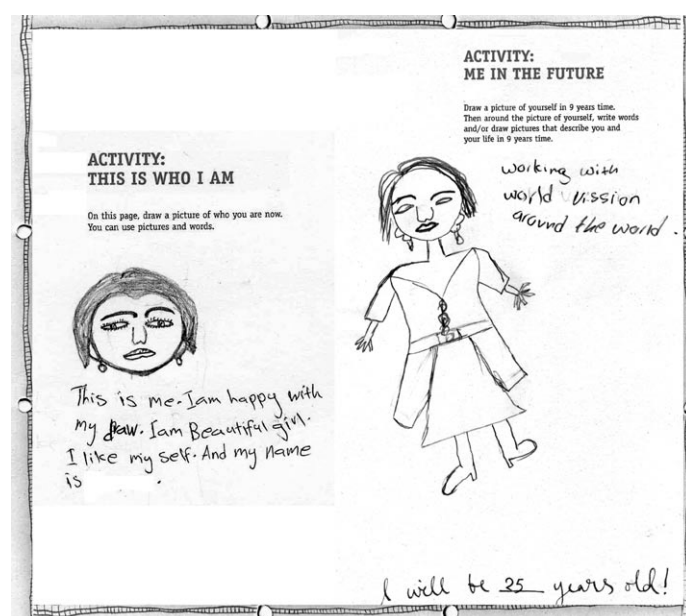 ACTIVITY:
THIS IS WHO I AM
On this page, draw a picture of who you are now.
You can use pictures and words.
This is me. Iam happy with
my draw. Iam Beautiful girl.
I like my self. And my name
is .
ACTIVITY:
ME IN THE FUTURE
Draw a picture of yourself in 9 years time.
Then around the picture of yourself, write words
and/or draw pictures that describe you and
your life in 9 years time.
working with
world vission
around the world.
I will be 25 years old!